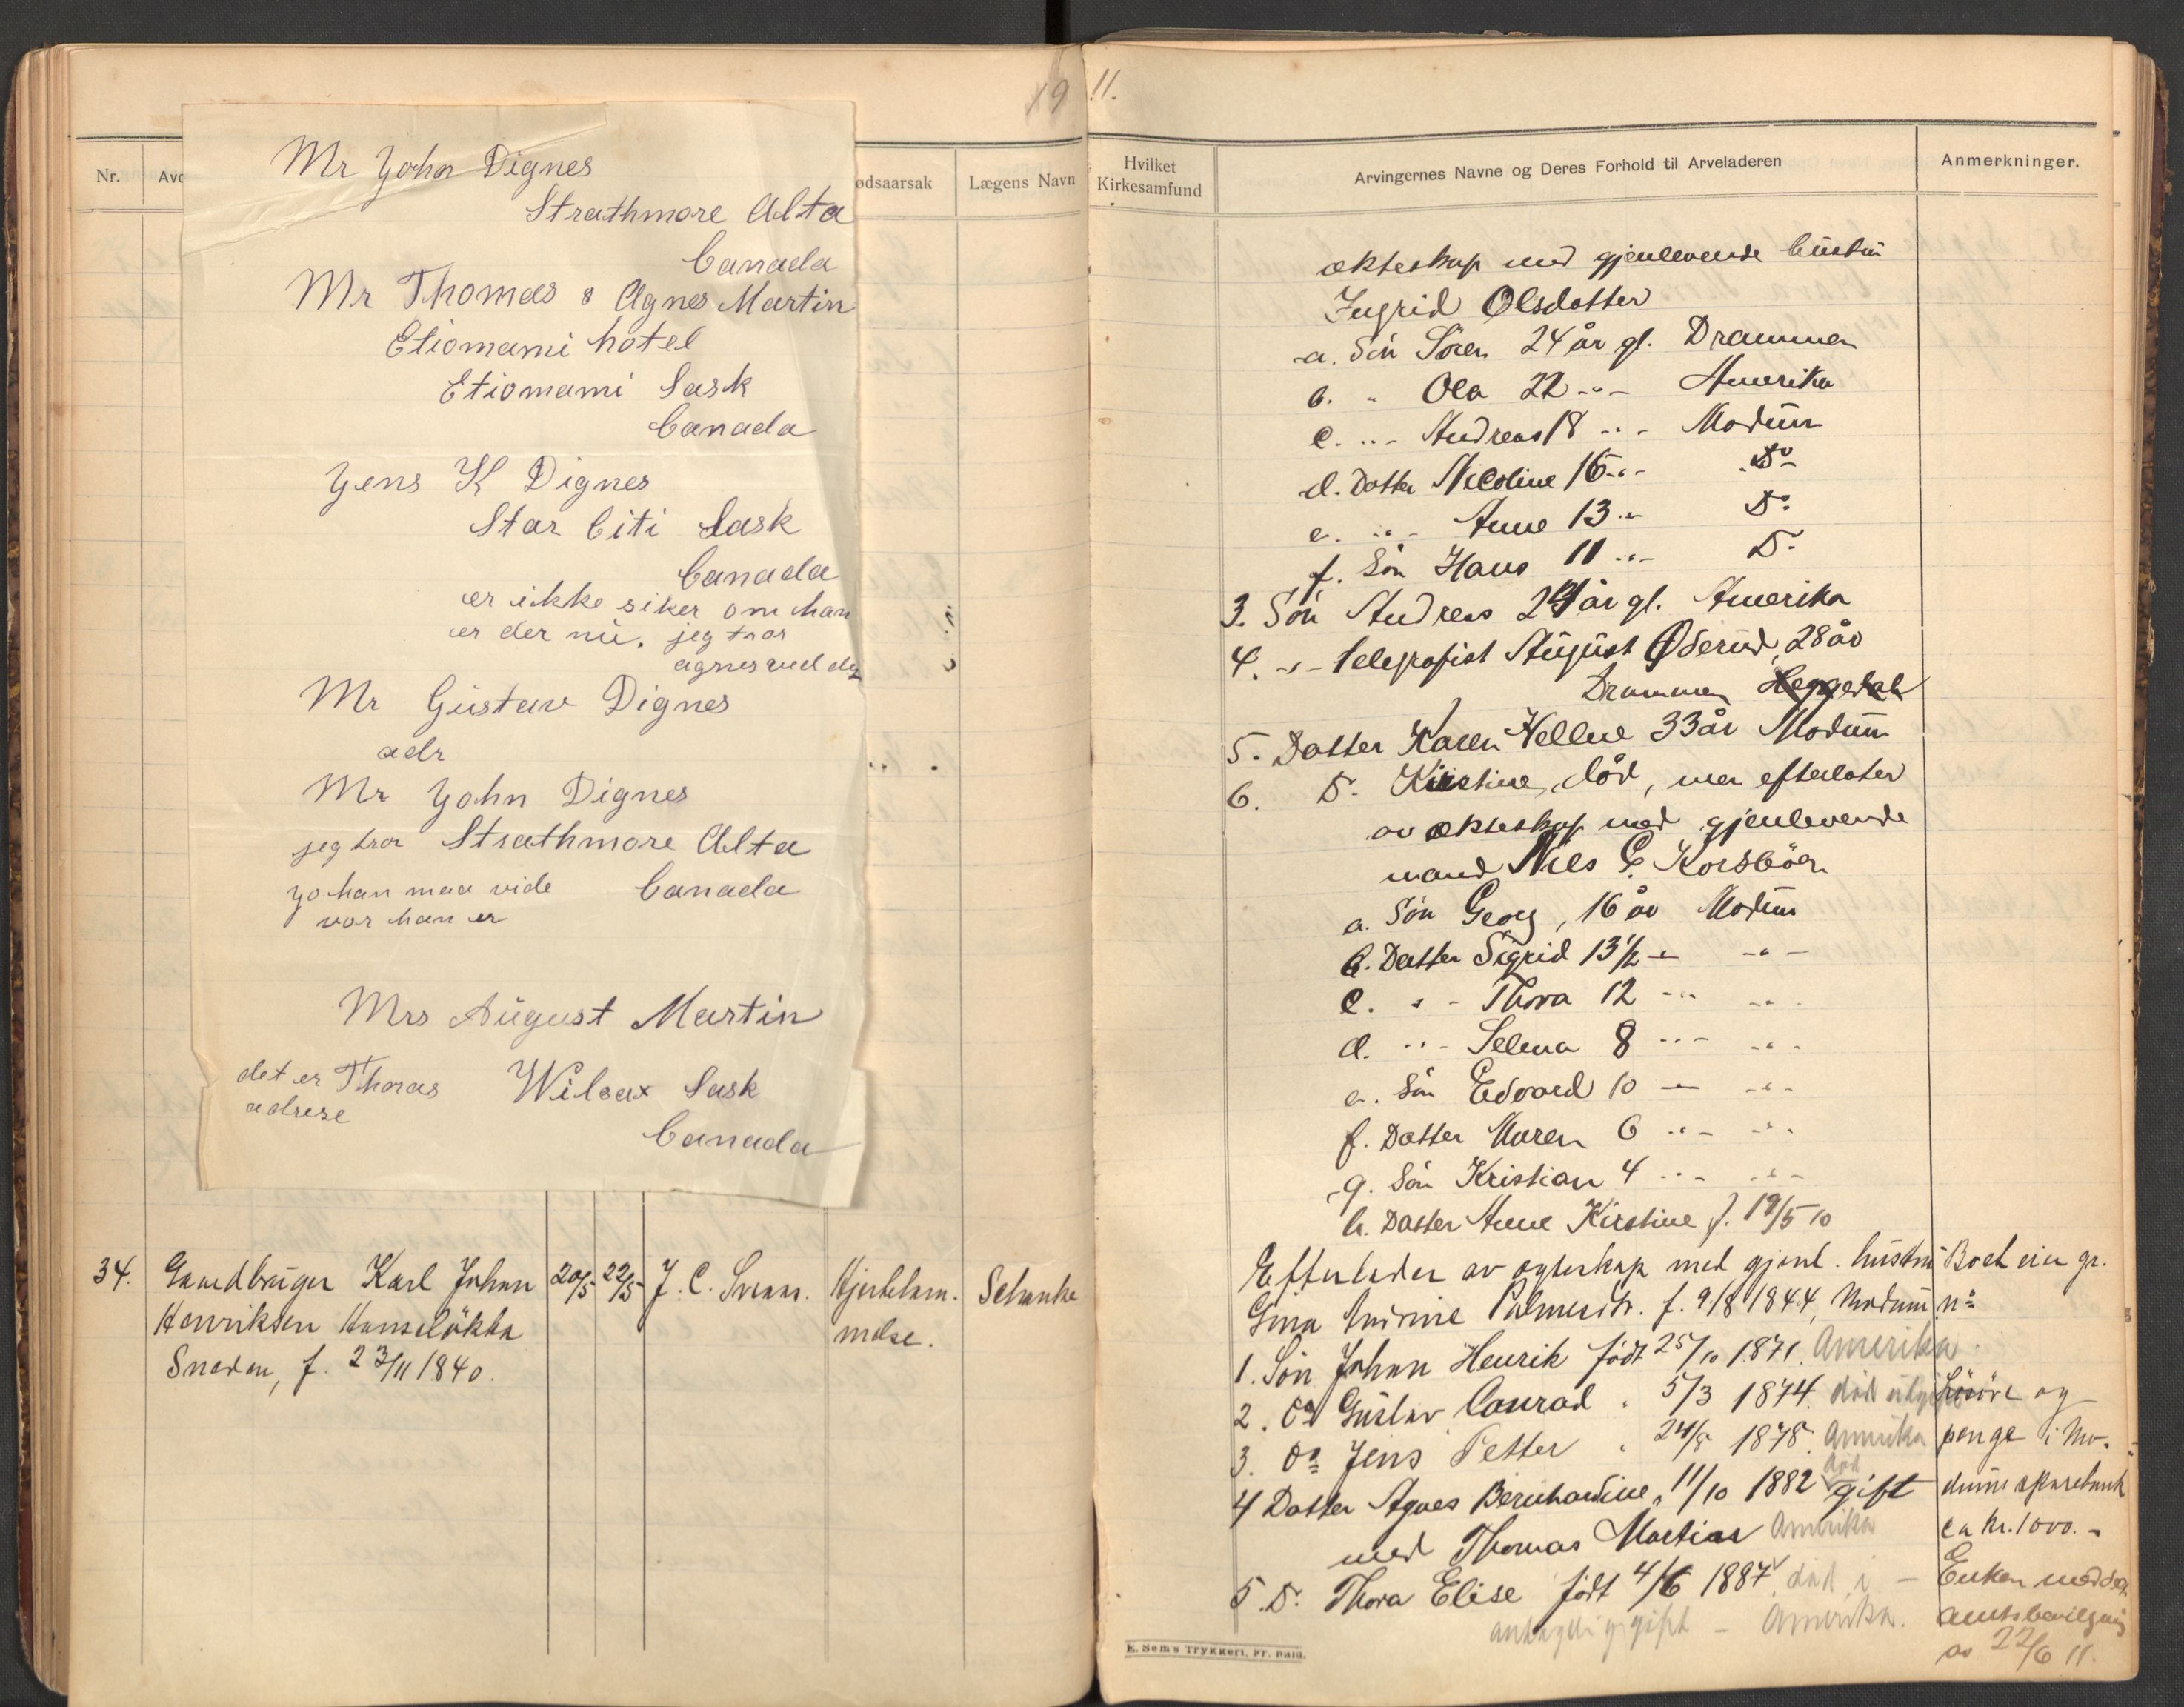 19
Nr.
ødsaarsak
Lægens Navn
Mr John Dignes
Strathmore Alta
Canada
Mr Thomas & Agnes Martin
Etiomami hotel
Etiomami Sask
Canada
Jens K Dignes
Star Citi Sask
Canada
er ikke siker om han
er der nu. jeg tror
agnes ved
Mr Gustav Dignes
adr
Mr John Dignes
jeg tror Strathmore Alta
Johan maa vide Canada
vor han er
Mrs August Martin
det er Thomas Wilcox Sask
adrese
Canada
34. Gaardbruger Karl Johan 20/5 22/5 J. C. Svenns. Hjertelam- Schanke
Henriksen Hanseløkka melse.
Snarum, f. 23/11 1840.
11.
Hvilket
Kirkesamfund
Arvingernes Navne og Deres Forhold til Arveladeren
Anmerkninger.
ekteskap med gjenlevende hustru
Ingrid Olsdatter
a. Sön Sören 24 år gl. Drammen
b. " Ola 22 -"- Amerika
c. -"- Andreas 18 -"- Modum
d. Datter Nicoline 16 -"- Do
e. -"- Anne 13 -"- Do
f. Sön Hans 11 -"- Do
3. Sön Andreas 24 år gl. Amerika
4. -"- telegrafist August Øderud, 28 år
Drammen
5. Datter Karen Hellne 33 år Modum
6. Do Kirstine, död, men efterlater
av ekteskap med gjenlevende
mand Nils P. Korsböen
a. Sön Georg, 16 år Modum
b. Datter Sigrid 13 1/2 -"- -"-
c. -"- Thora 12 -"- -"-
d. -"- Selma 8 -"- -"-
e. Sön Edvard 10 -"- -"-
f. Datter Maren 6 -"- -"-
g. Sön Kristian 4 -"- -"-
h. Datter Anne Kirstine f. 19/5 10
Efterlader av egteskap med gjenl. hustru
Gina Andrine Palmesdtr. f. 9/8 1844, Modum
1. Sön Johan Henrik födt 25/10 1871. Amerika
2. Do Gustav Conrad " 5/3 1874. död ugift
3. Do Jens Petter " 24/8 1878. Amerika
4 Datter Agnes Bernhardine " 11/10 1882 död gift
med Thomas Martin Amerika
5. Do Thora Elise födt 4/6 1887 död i
antagelig gift - Amerika.
Boet eier gr.
no
Lösöre og
penge i Mo-
dums sparebank
ca kr. 1000.-
Enken meddelt
amtsbevilgning
av 22/6 11.
E. Sem's Trykkeri, Fr.hald.